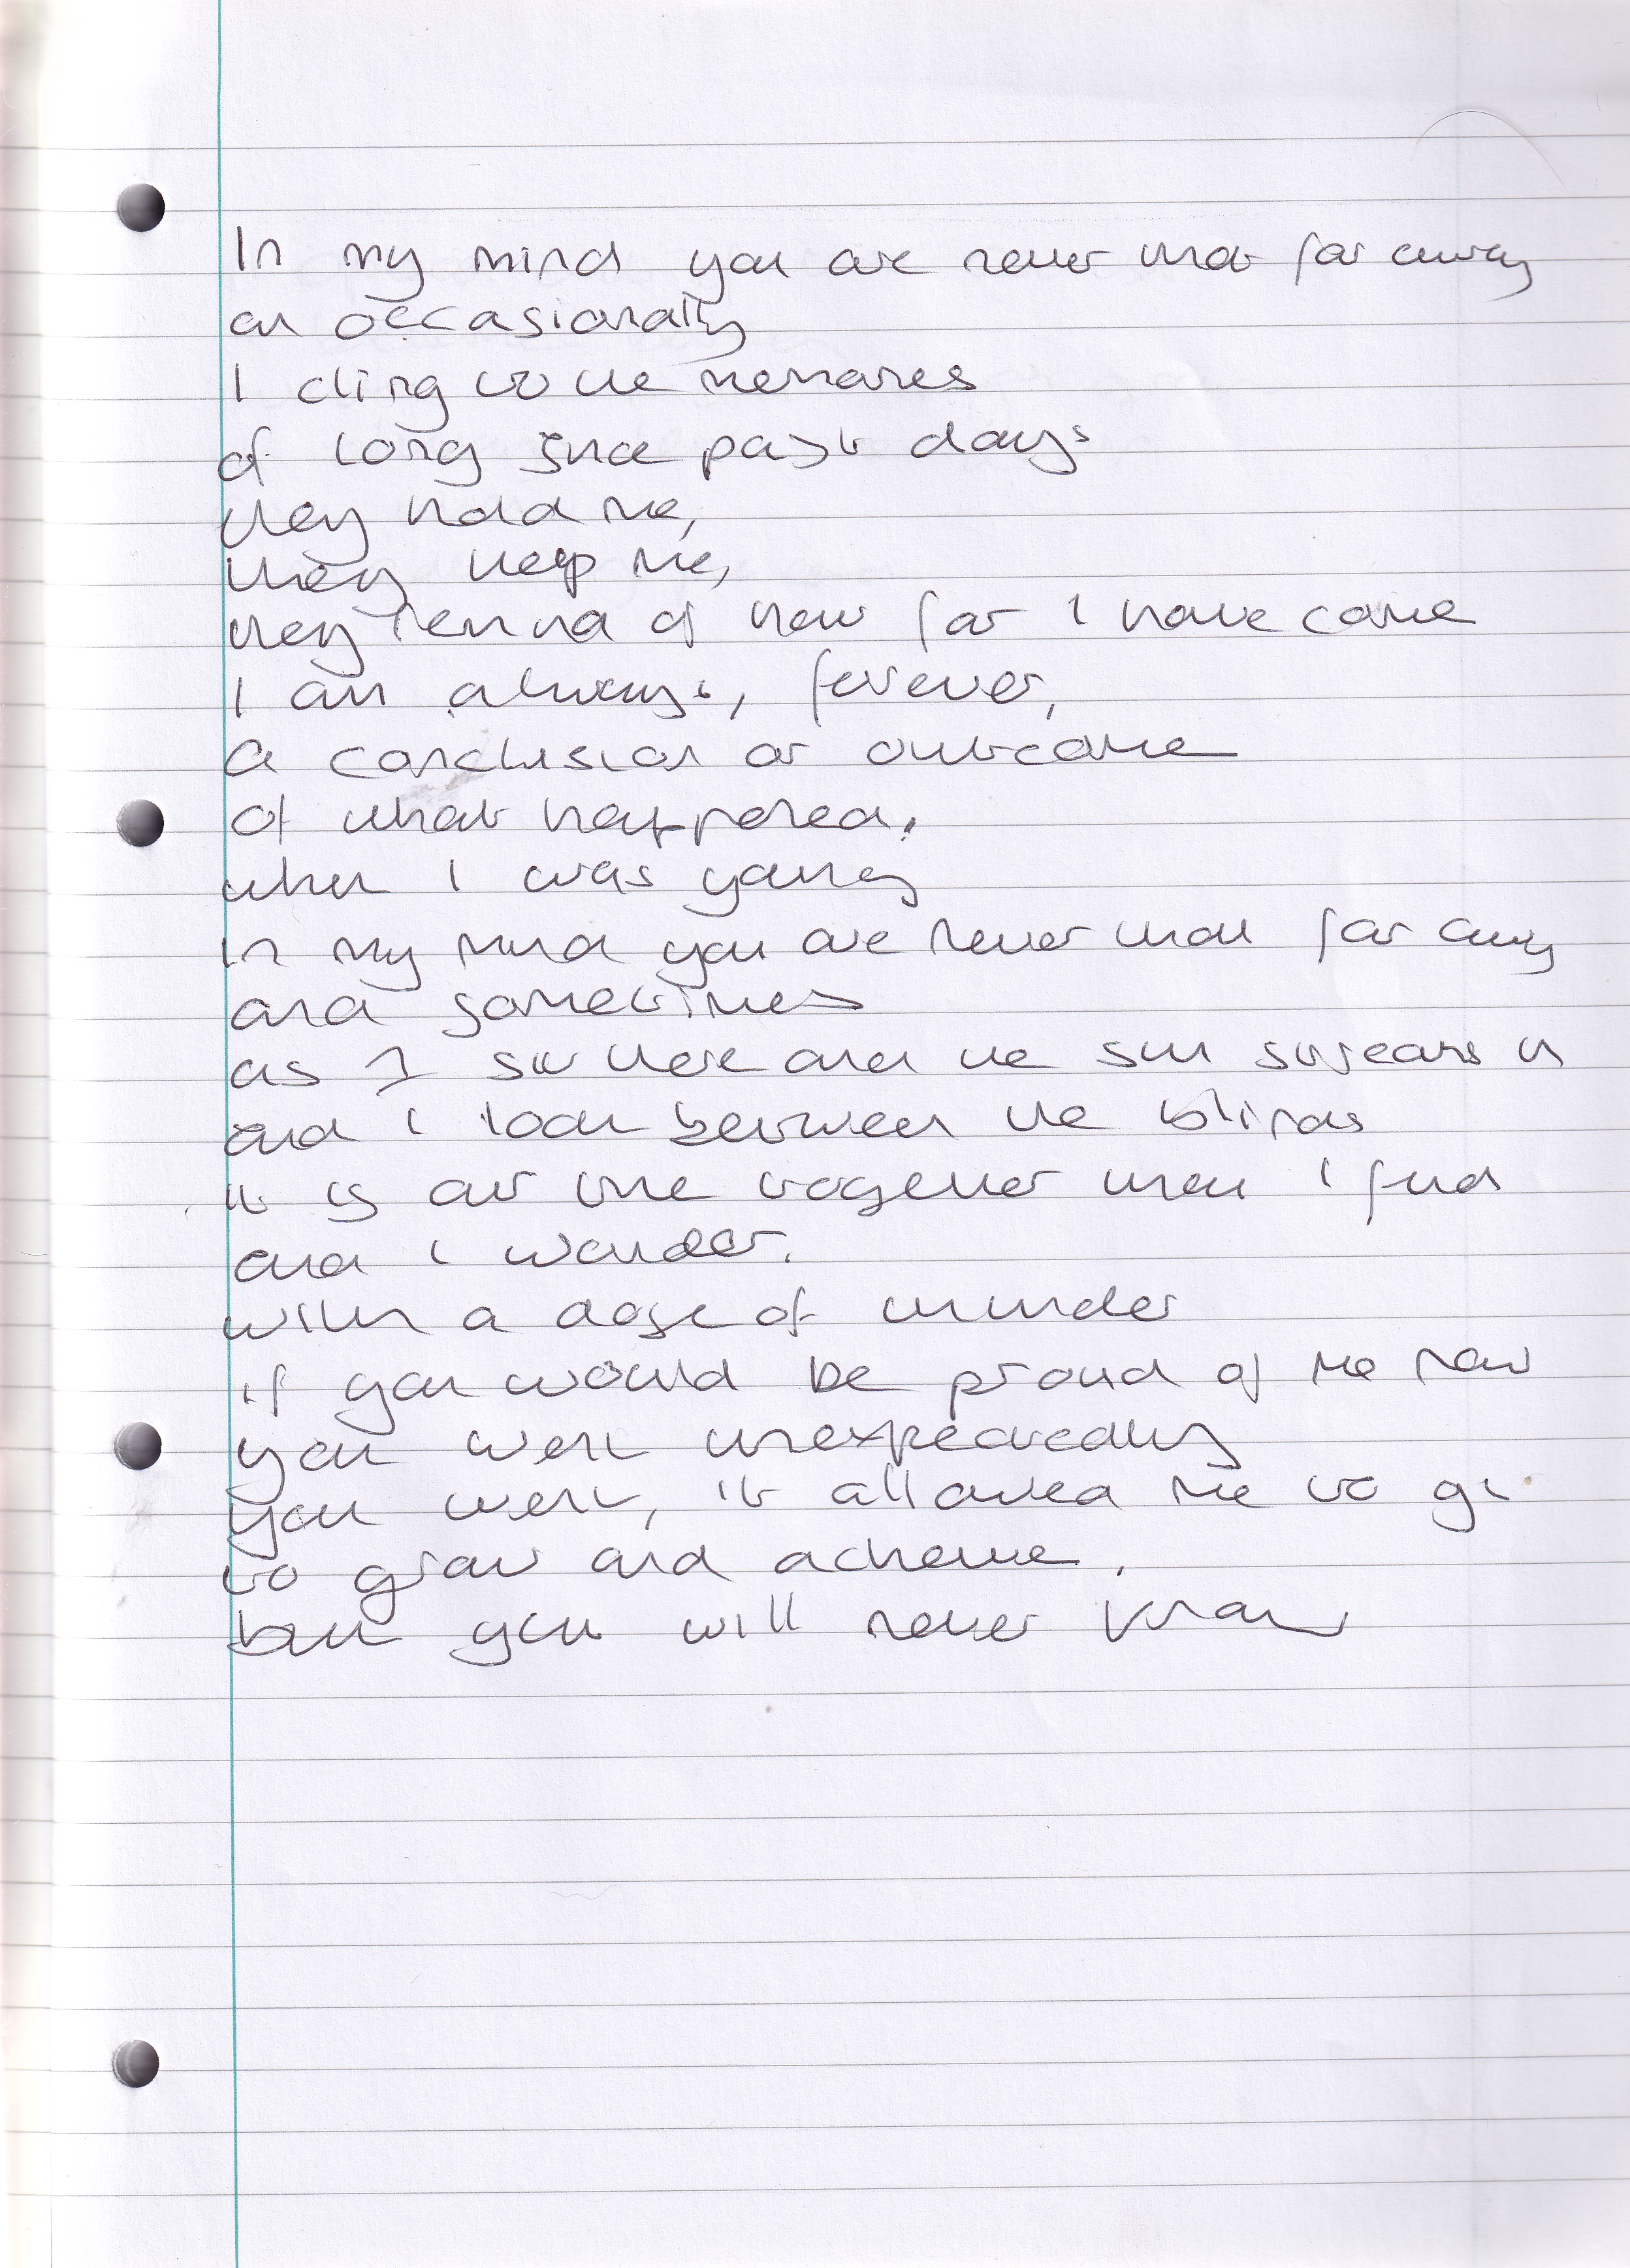 In my mind you are never that far away
an occasionally
I cling to the memories
of long since past days
they hold me,
they help me,
they remind of how far I have come
I am always, forever,
a conclusion or outcome
of what happened,
when I was young
In my mind you are never that far away
and sometimes
as I sit here and the sun streams in
and I look between the blinds
it is at time together that I find
and I wonder.
with a dose of
if you would be proud of me now
you went unexpectedly
you went, it allowed me to go
to grow and achieve.
but you will never know